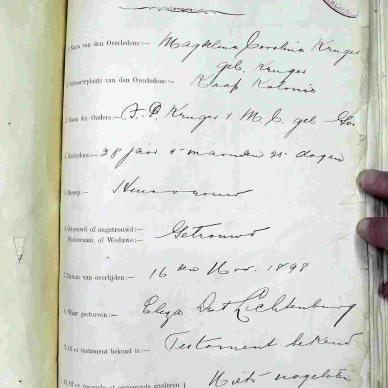 1. Naam van den Overledene:— Magdelina Carolina Kruger
geb. Kruger
2. Geboorteplaats van den Overledene:— Kaap Kolonie
3. Naam der Ouders:— J. P. Kruger & M. C. geb
4. Ouderdom:— 28 jaar 5 maanden 25 dagen
5. Beroep:— Huisvrouw
6. Getrouwd of ongetrouwd:—
Weduwnaar of Weduwe:— Getrouwd
7. Datum van overlijden:— 16 Nov. 1898
8. Waar gestorven:— Dist Lichtenburg
9. Of er testament bekend is:— Testament bekend
10. Of er roerende of onroerende goederen Niets nagelaten